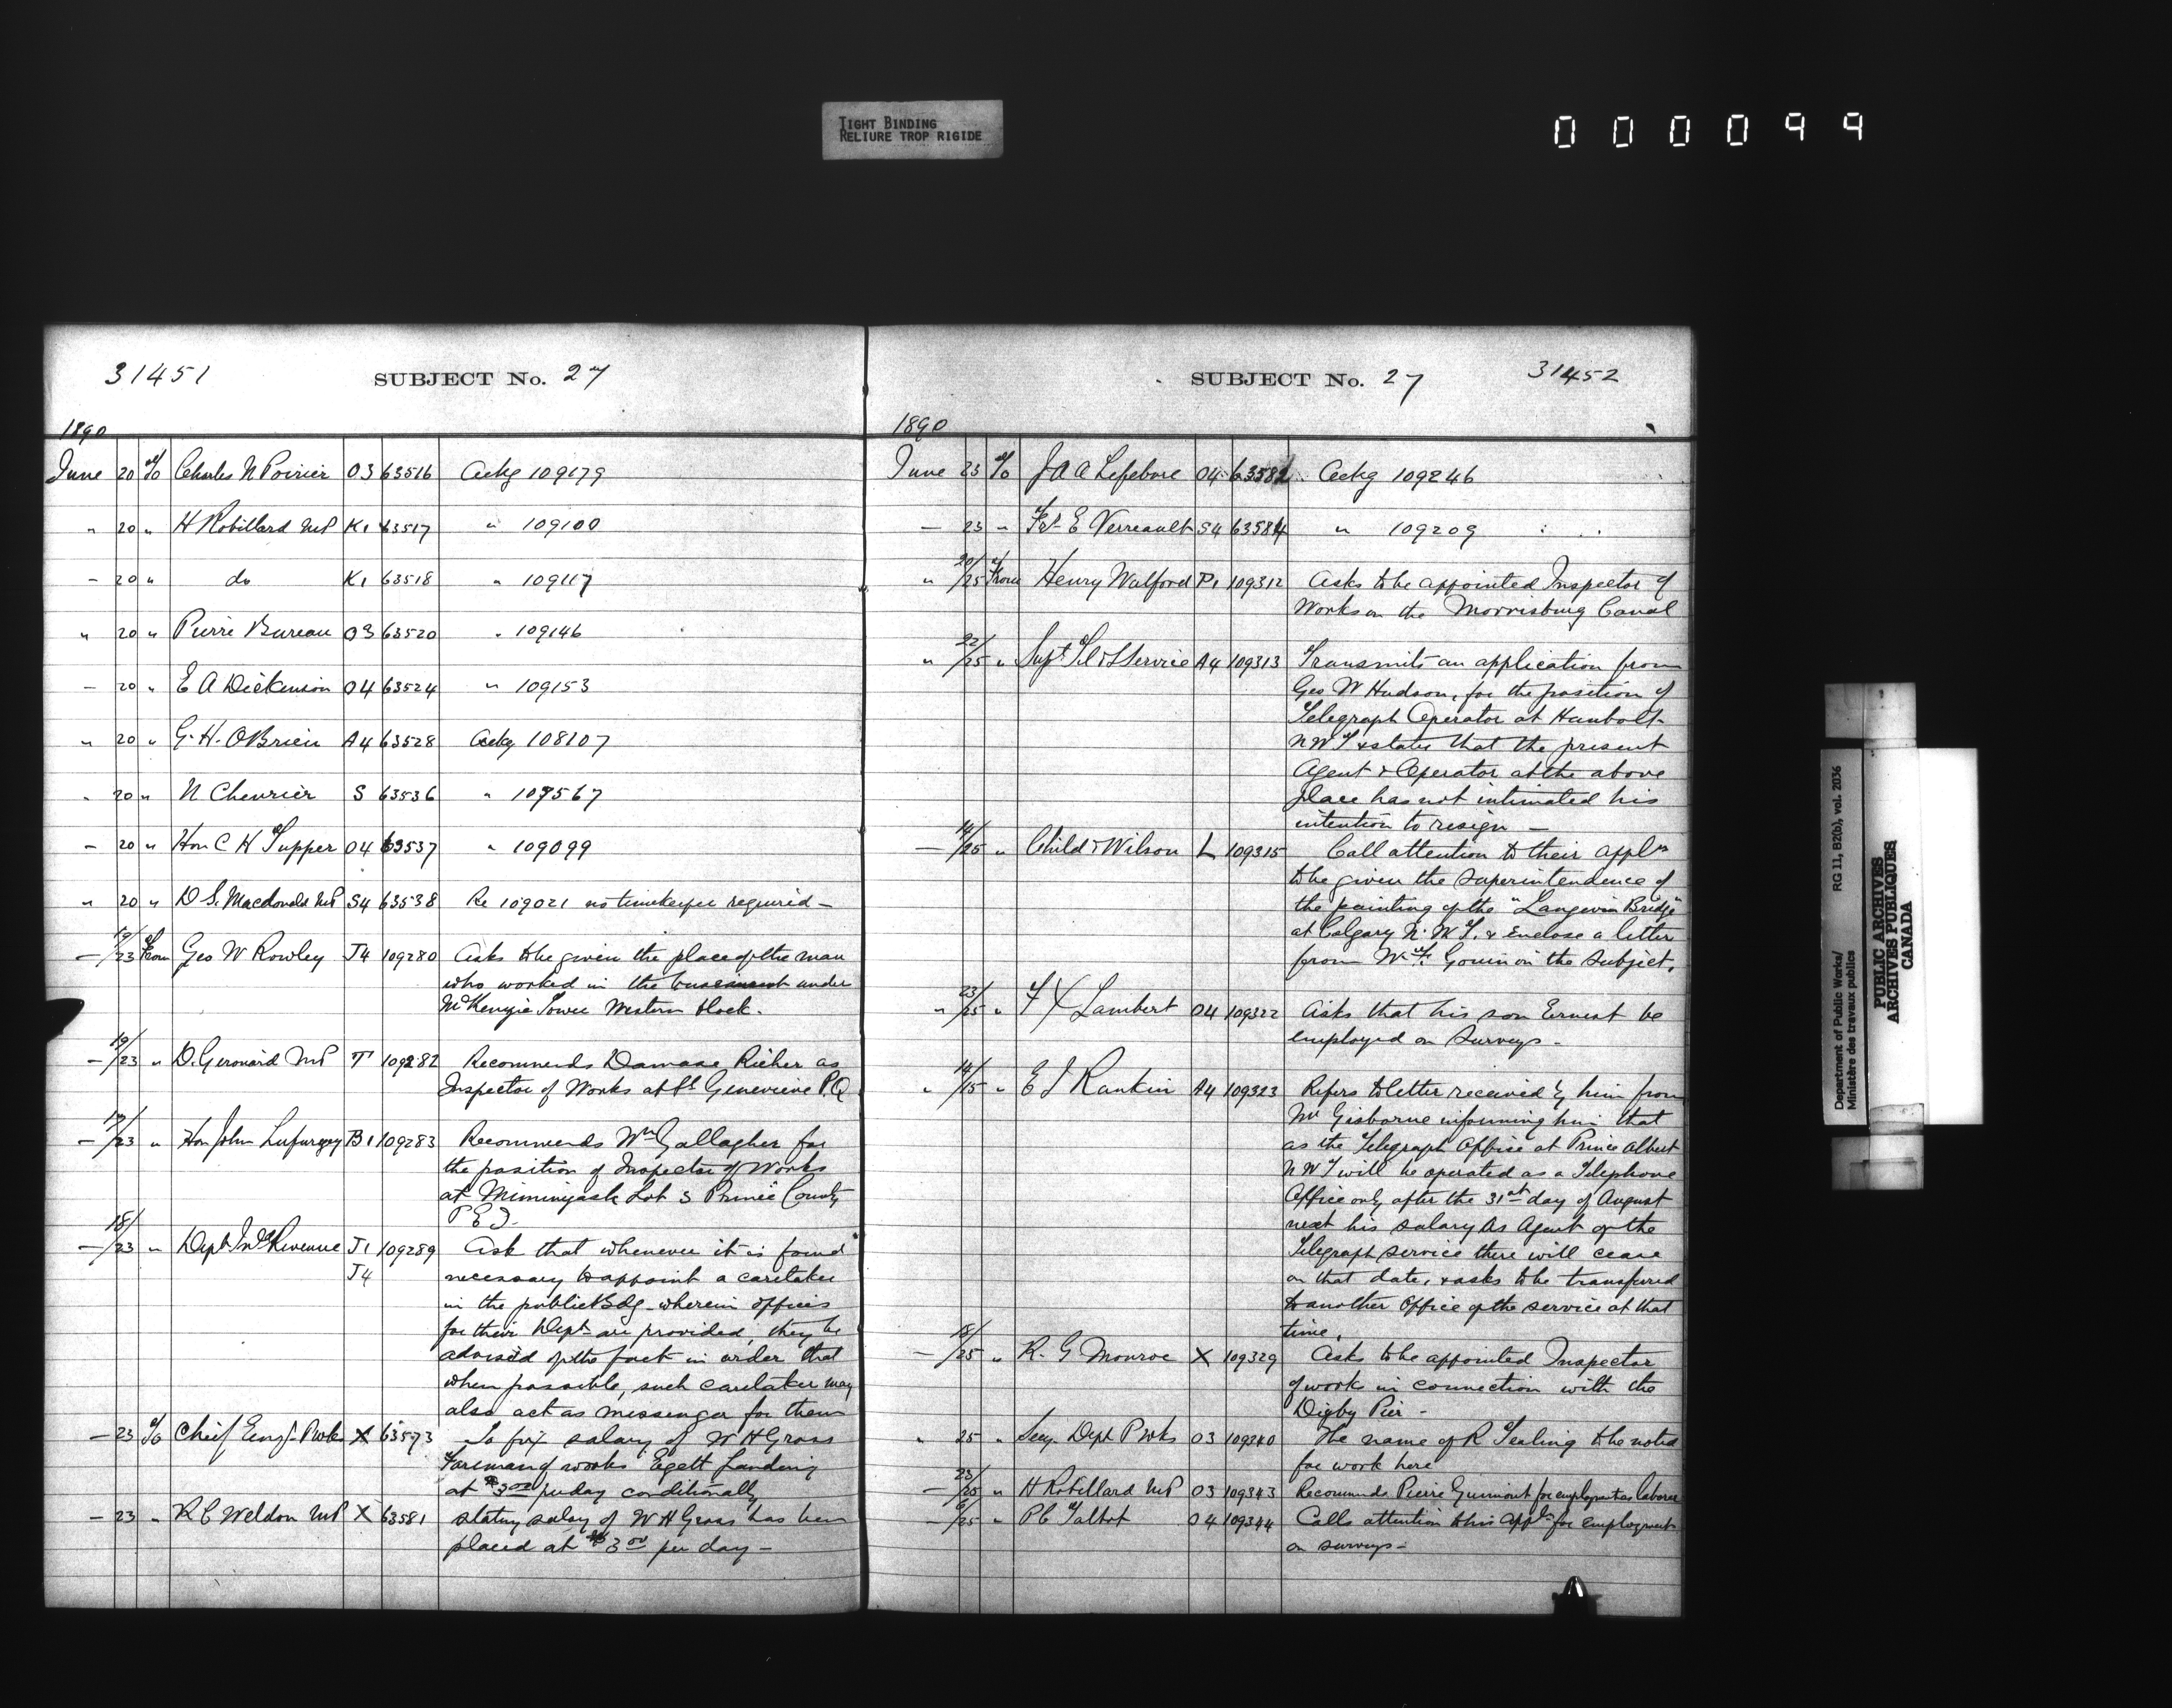 TIGHT BINDING
RELIURE TROP RIGIDE
000099
31451 SUBJECT No. 27
1890
June 20 To Charles N Poirier O3 63516 Ackg 109179
" 20 " H Robillard MP K1 63517 " 109100
- 20 " do K1 63518 " 109117
" 20 " Pierre Bureau O3 63520 " 109146
- 20 " E A Dickenson O4 63524 " 109153
" 20 " G. H. OBrien A4 63528 Ackg 108107
" 20 " N Chevrier S 63536 " 109567
- 20 " Hon C H Tupper O4 63537 " 109099
" 20 " D S. Macdonald MP S4 63538 Re 109021 no timekeeper required -
- 19/23 From Geo W Rowley J4 109280 Asks to be given the place of the man
who worked in the under
McKenzie Tower Western block.
- 19/23 " D. Gerouard MP T 109282 Recommends Damase Richer as
Inspector of Works at St. Genevieve P.Q
- 17/23 " Hon John Lefurgey B1 109283 Recommends Wm Gallagher for
the position of Inspector of Works
at Miminigash Lot 3 Prince County
P E I.
- 18/23 " Dept Ind Revenue J1 109289 Ask that whenever it is found
J4 necessary to appoint a caretaker
in the public Bdg. wherein offices
for their Dept are provided, they be
advised of the fact in order that
when possible, such caretaker may
also act as messenger for them
- 23 To Chief Engr. P Wks X 63573 To fix salary of W H Gross
Foreman of works Egett Landing
at $3.00 per day conditionally
- 23 " R C Weldon MP X 63581 stating salary of W H Gross has been
placed at $3.00 per day -
SUBJECT No. 27 31452
1890
June 23 To J A A Lefebvre O4 63582 Ackg 109246
- 23 " E Verreault S4 63584 " 109209
" 20/25 From Henry Walford P1 109312 Asks to be appointed Inspector of
Works on the Morrisburg Canal
" 22/25 " Supt Tel & S Service A4 109313 Transmits an application from
Geo W Hudson, for the position of
Telegraph Operator at Humbolt
N W T & states that the present
Agent & Operator at the above
place has not intimated his
intention to resign -
- 14/25 " Child & Wilson L 109315 Call attention to their appln
to be given the superintendence of
the painting of the "Langevin Bridge"
at Calgary N. W T. & Enclose a letter
from Gouin on the subject.
" 23/25 " F X Lambert O4 109322 Asks that his son Ernest be
employed on Surveys -
" 14/15 " E J Rankin A4 109323 Refers to letter received by him from
Mr Gisborne informing him that
as the Telegraph Office at Prince Albert
N W T will be operated as a Telephone
Office only after the 31st day of August
next his salary as Agent of the
Telegraph service there will cease
on that date, & asks to be transfered
to another Office of the service at that
time.
- 18/25 " R. G Monroe X 109329 Asks to be appointed Inspector
of works in connection with the
Digby Pier -
" 25 " Secy. Dept P Wks O3 109340 The name of R Tealing to be noted
for work here
- 23/25 " H Robillard MP O3 109343 Recommends Pierre Guimont for employmt as laborer
- 6/25 " P C Talbot O4 109344 Calls attention to his appln for employment
on surveys -
Department of Public Works/ RG 11, B2(b), vol. 2036
Ministère des travaux publics
PUBLIC ARCHIVES
ARCHIVES PUBLIQUES
CANADA